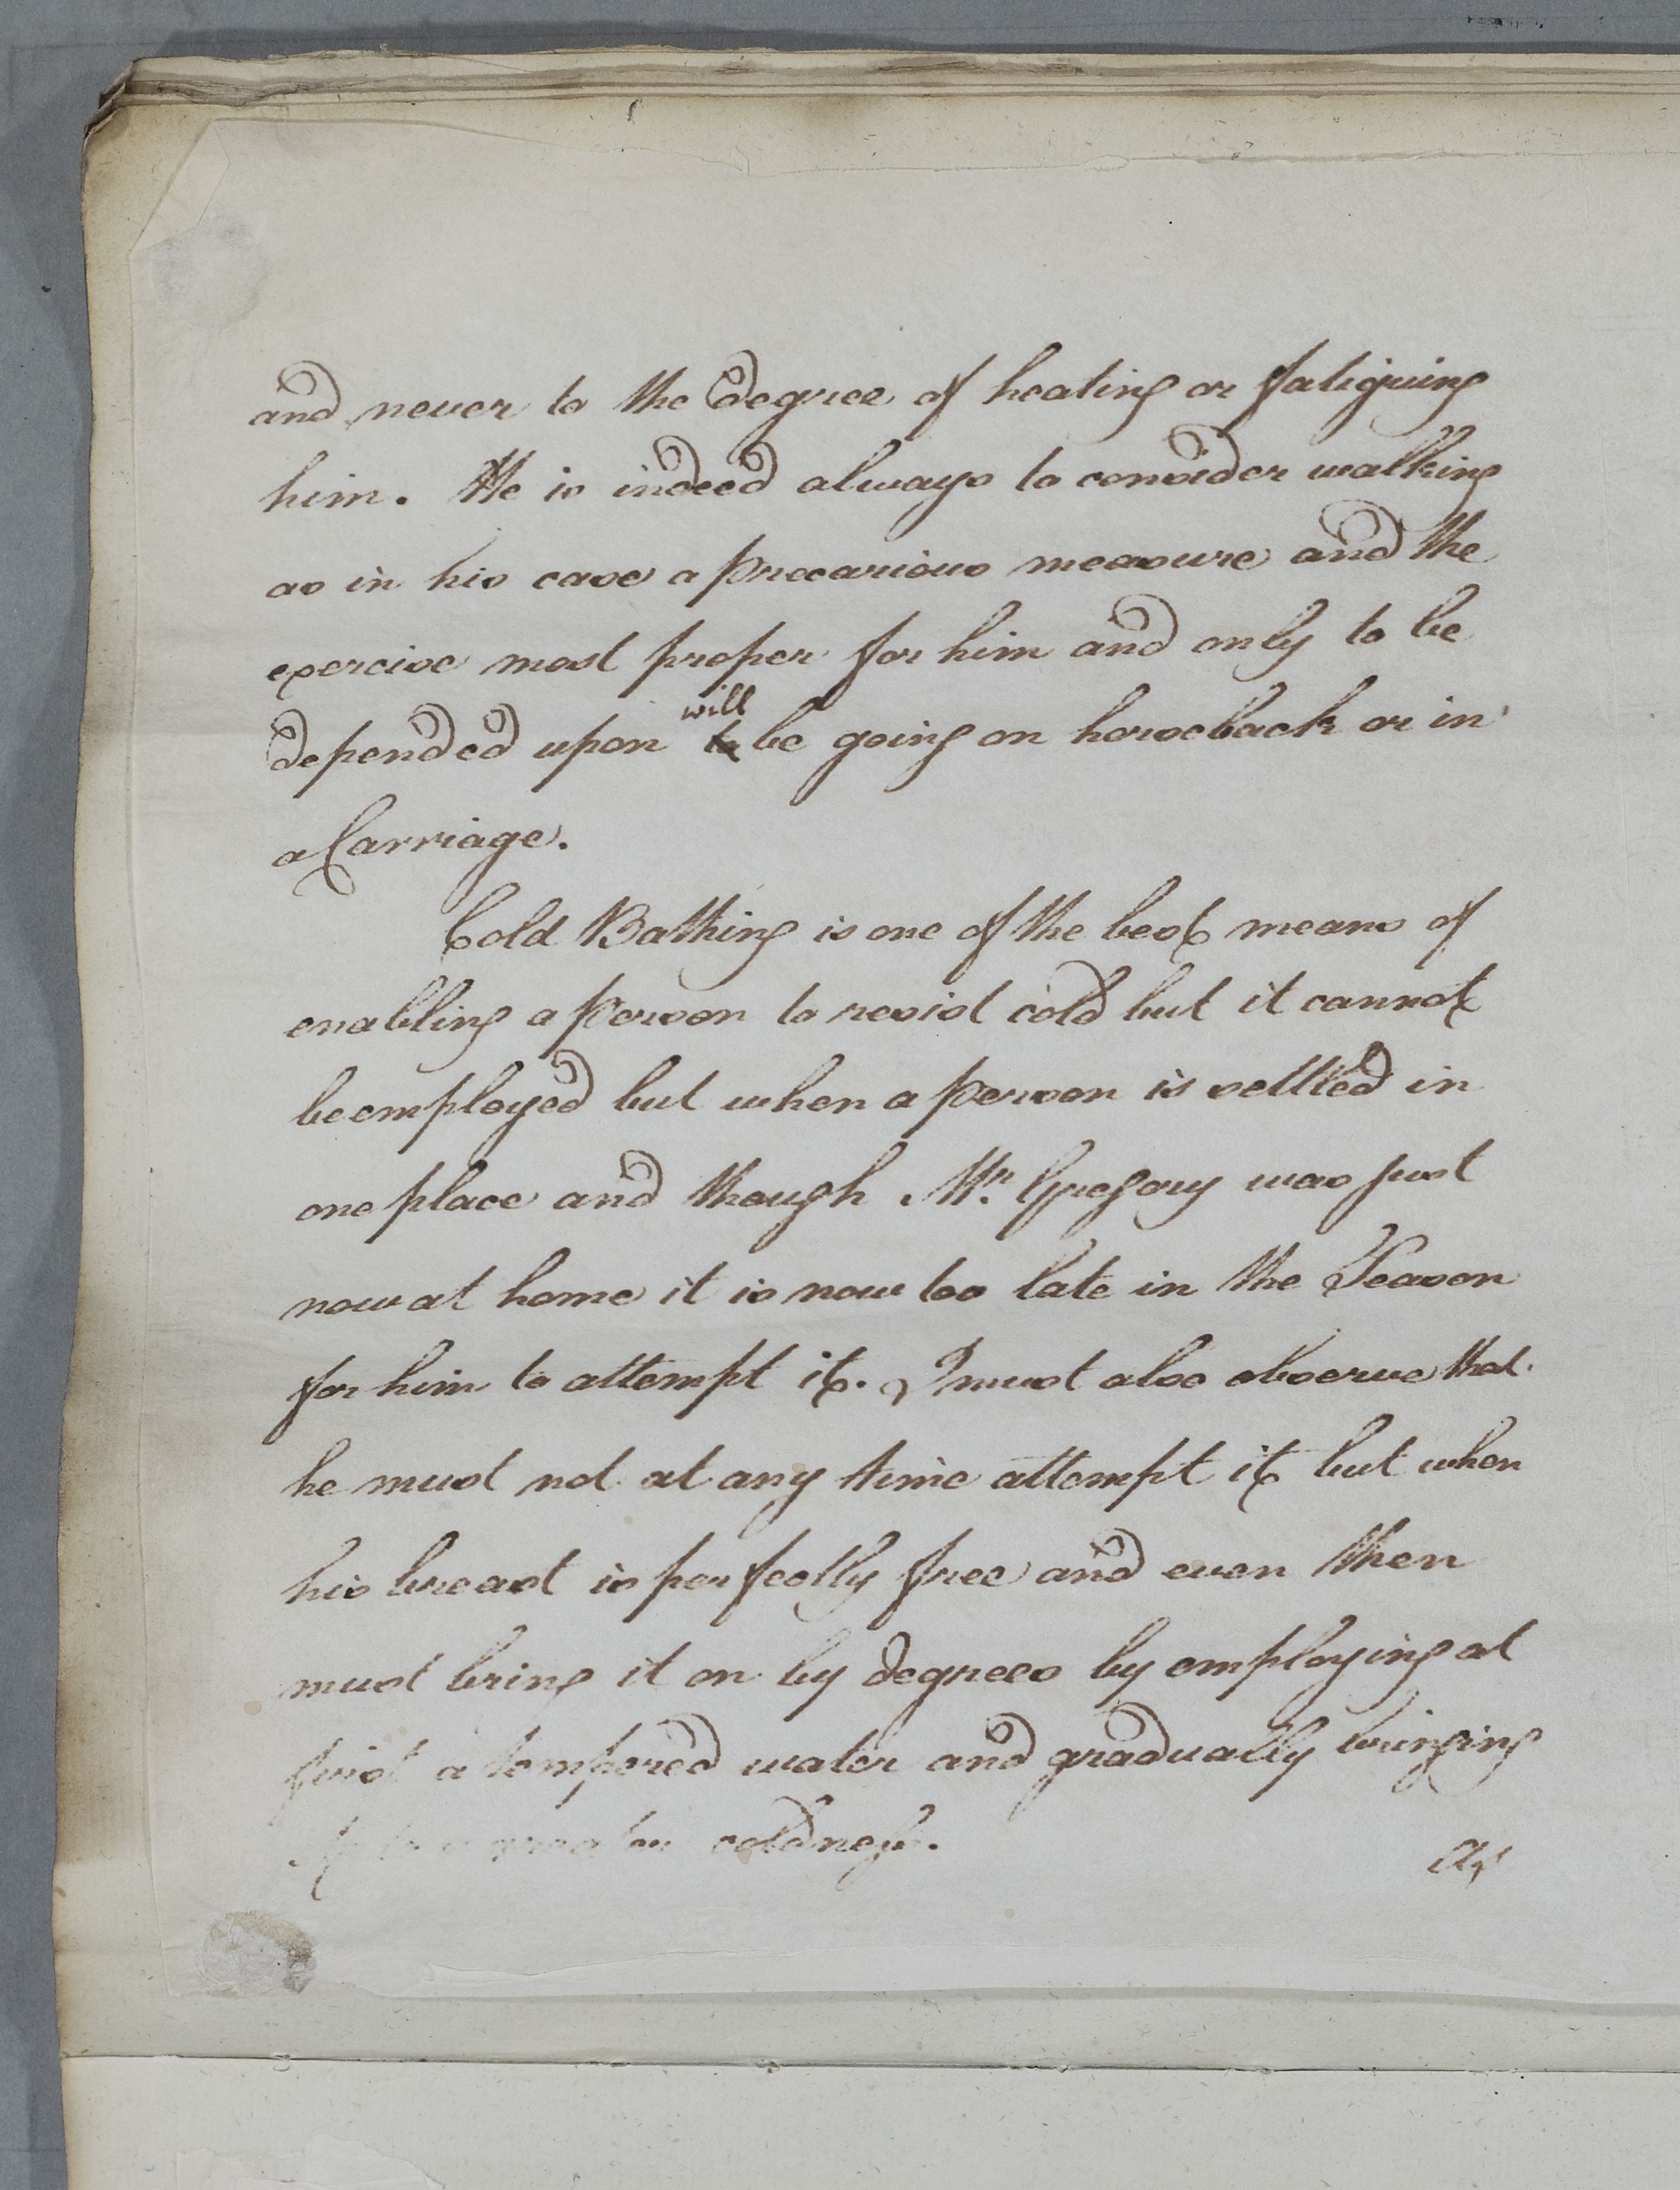 and never to the degree of heating or fatiguing
him. He is indeed always to consider walking
as in his case a precarious measure and the
exercise most proper for him and only to be
depended upon will be going on horseback or in
a Carriage.
Cold Bathing is one of the best means of
enabling a person to resist cold but it cannot
be employed but when a person is settled in
one place and though Mr. Gregory was just
now at home it is now too late in the Season
for him to attempt it. I must also observe that
he must not at any time attempt it but when
his breast is perfectly free and even then
must bring it on by degrees by employing at
first a tempered water and gradually bringing
to a greater coldness.
As